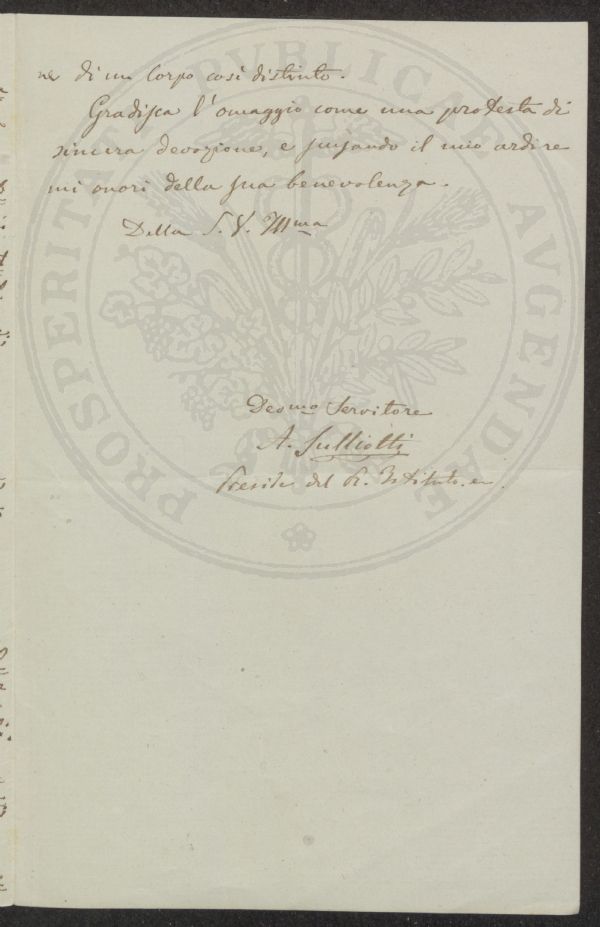 ne di un Corpo così distinto.
Gradisca l'omaggio come una protesta di
sincera devozione, e scusando il mio ardire
mi onori della sua benevolenza.
Della S. V. Illma
Devmo Servitore
A. Sulliotti
Preside del R. Istituto
PROSPERITATI PVBLICAE AVGENDAE